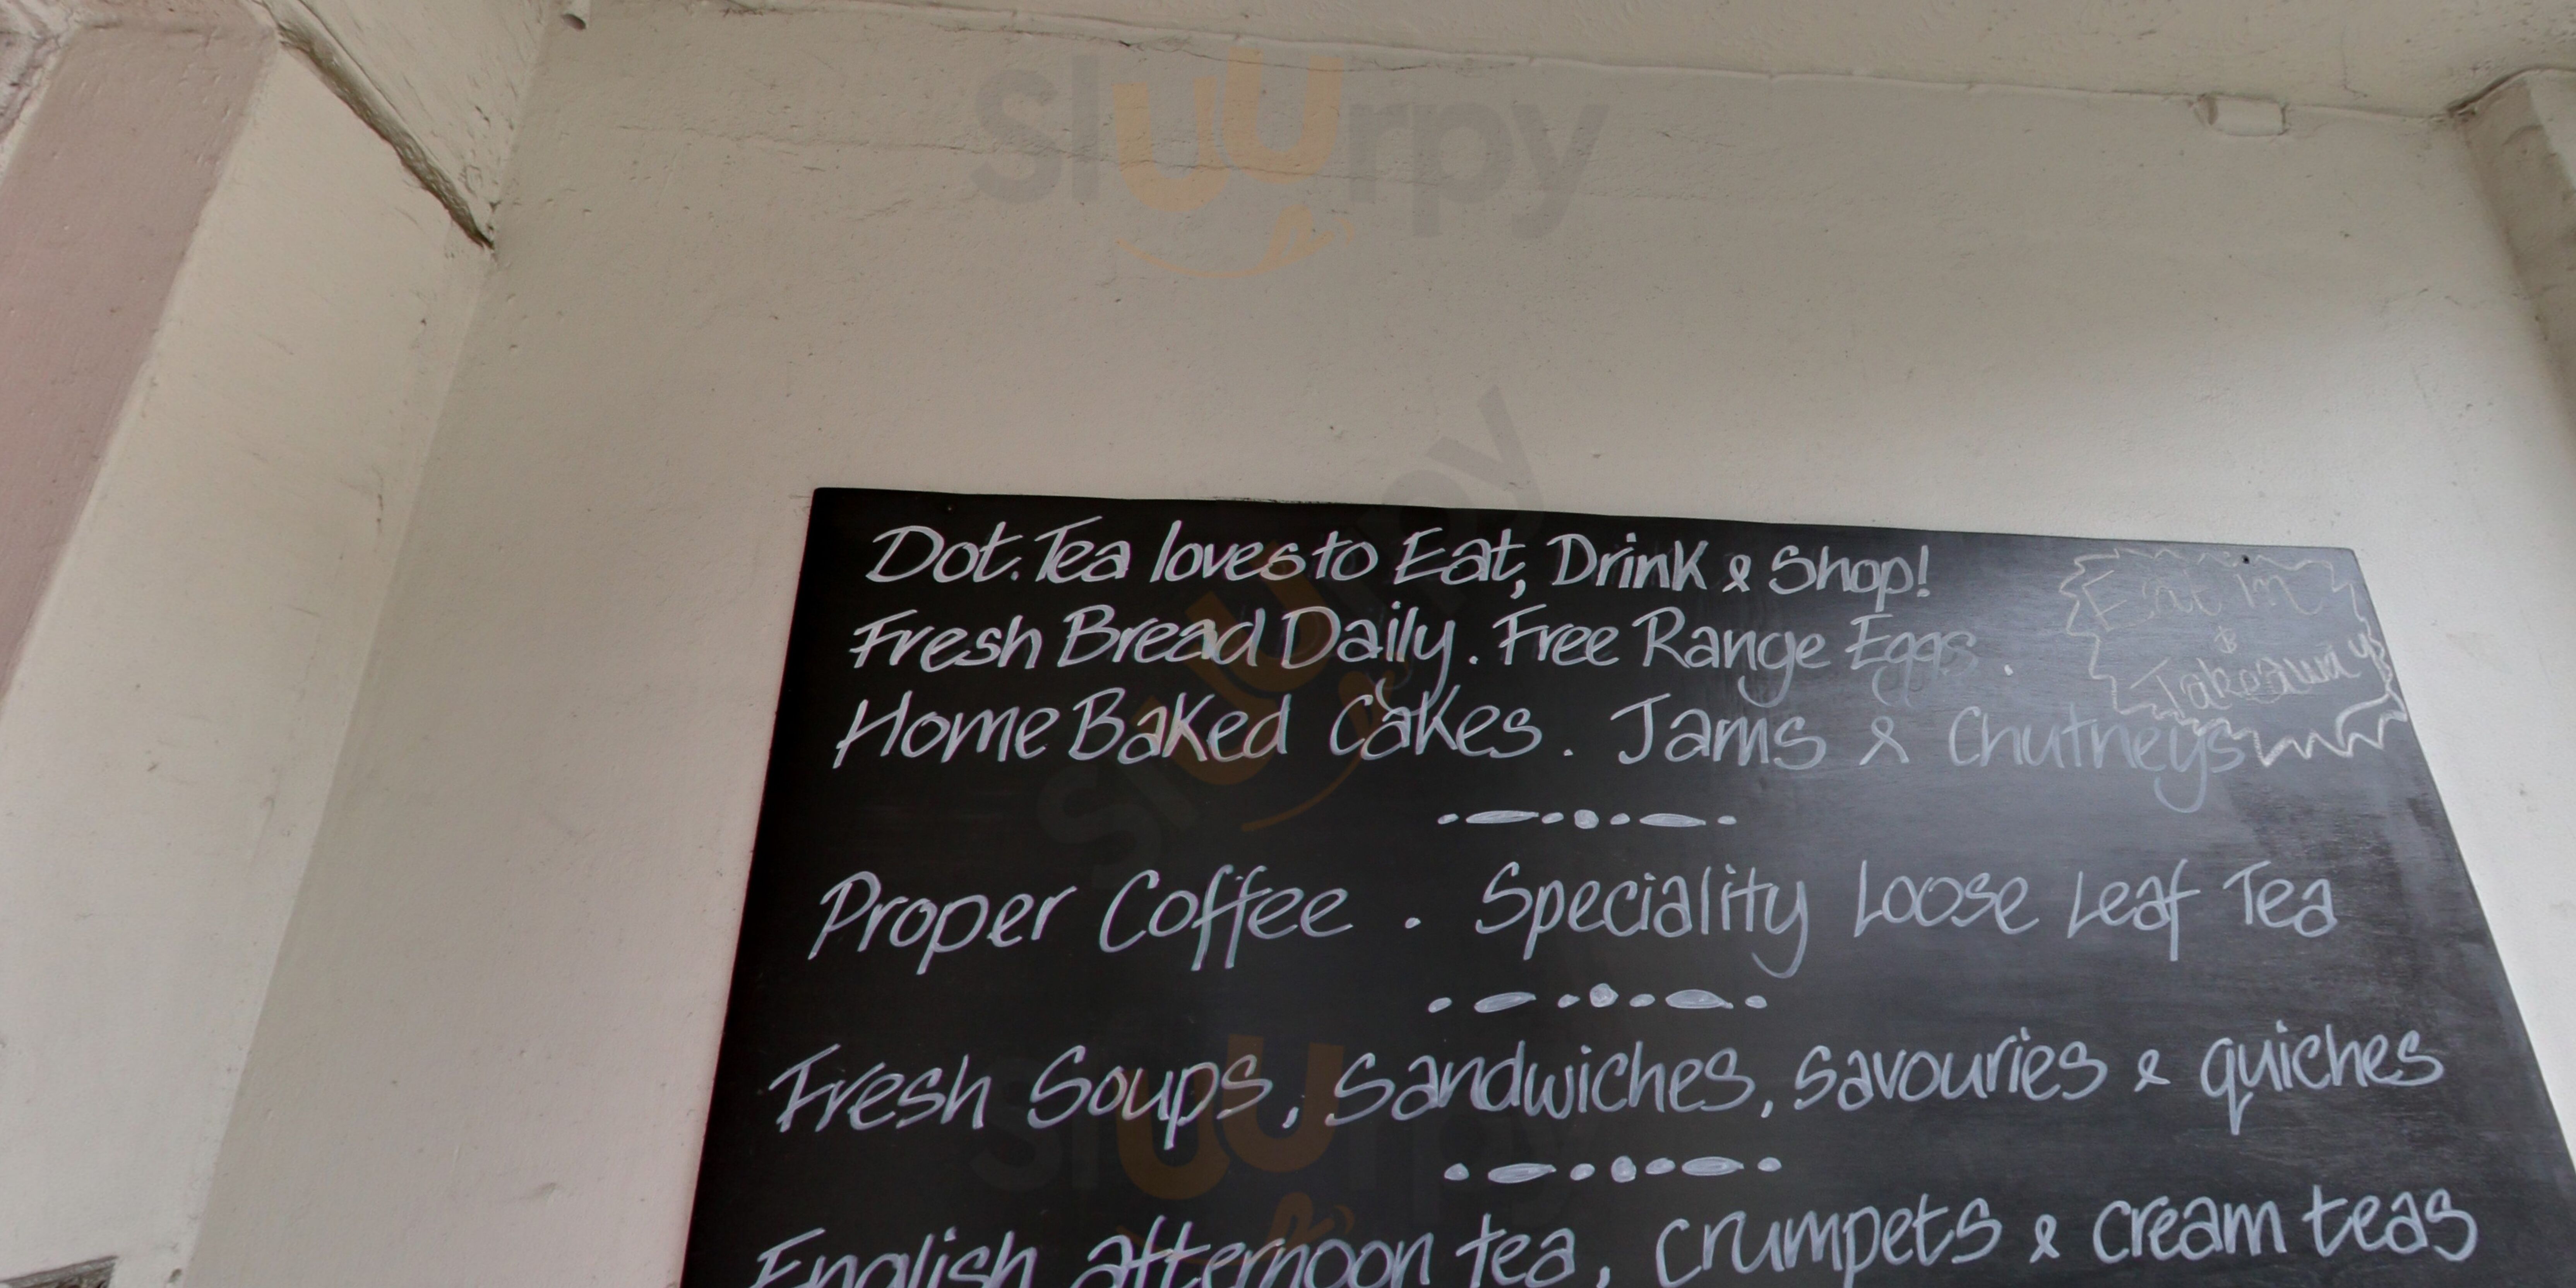 sluurpy
Dot.Tea loves to Eat, Drink & Shop!
Fresh Bread Daily. Free Range Eggs .
Home Baked Cakes . Jams & Chutneys
Eat in
&
Takeaway
Proper Coffee . Speciality Loose Leaf Tea
Fresh Soups, Sandwiches, Savouries & quiches
English afternoon tea, crumpets & cream teas
sluurpy
sluurpy